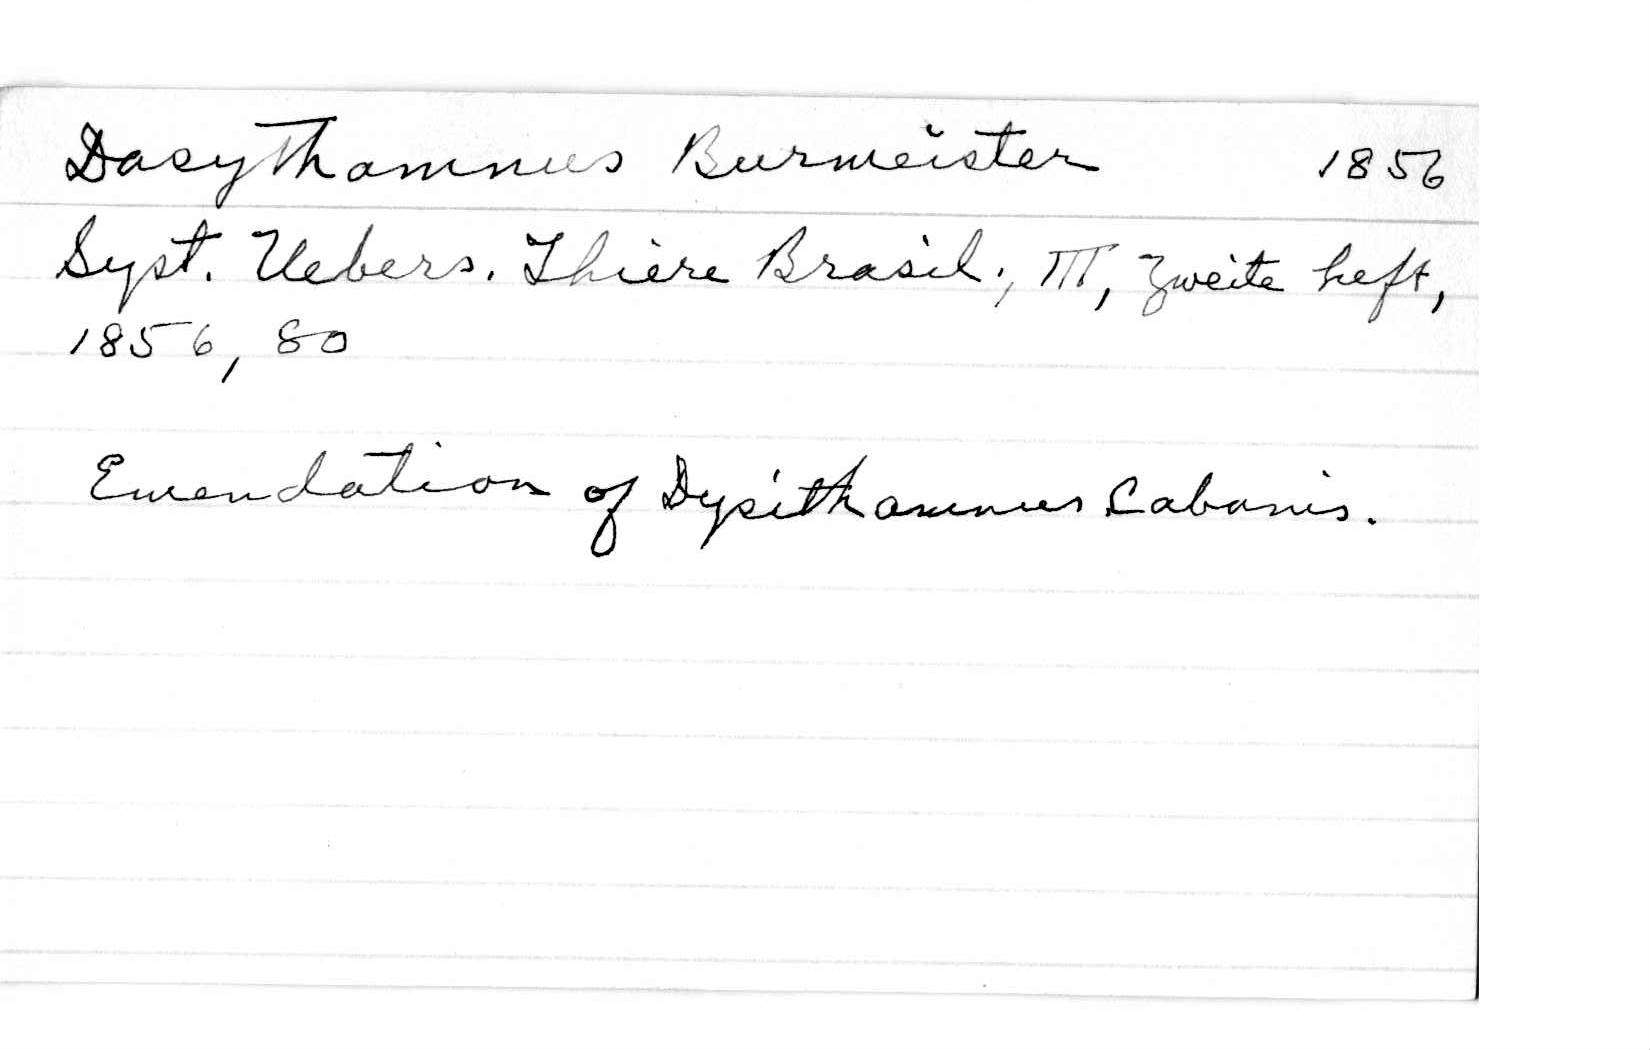 Dasythamnus Burmeister 1856
Syst. Uebers. Thiere Brasil., III, Zweite heft,
1856, 80
Emendation of Dysithamnus Cabanis.